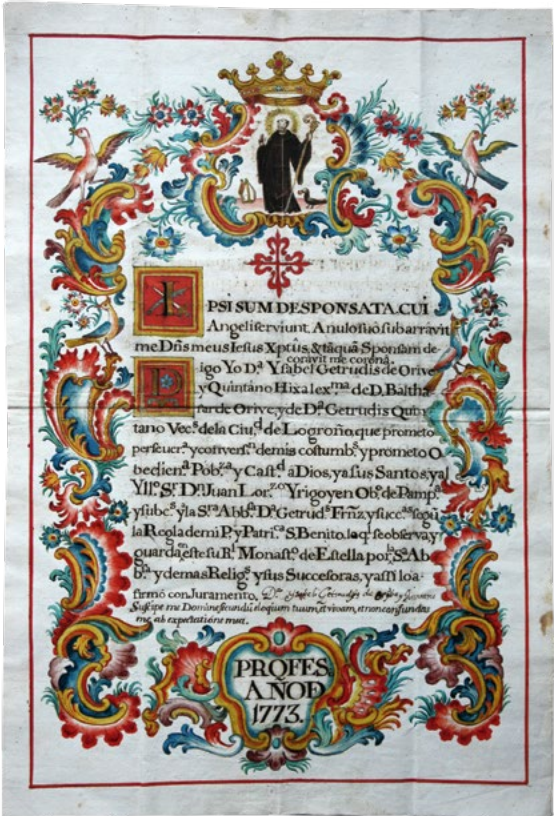 IPSI SUM DESPONSATA. CUI
Angeli serviunt. Anulo suo subarravit
me Dñs meus Iesus Xptûs, & tãquã Sponsam de-
coravit me corona.
Digo Yo D.ª Ysabel Getrudis de Orive
y Quintano Hixa lex.ma de D. Baltha-
sar de Orive, y de D.ª Getrudis Quin-
tano Vec.s de la Ciu.d de Logroño, que prometo
persever.ª y convers.n de mis costumb.s y prometo O-
bedien.ª Pob.za y Cast.d a Dios, y a sus Santos, y al
Yll.o S.r D.n Juan Lor.zo Yrigoyen Ob.o de Pamp.ª
y sub.c.s y la S.ra Abb.ª D.ª Getrud.s Frñz, y succ.as segũ
la Regla de mi P. y Patri.ca S. Benito, la q.e se observa, y
guarda en este su R.l Monast.o de Estella por la S.ª Ab-
b.ª y demas Relig.s y sus Successoras, y assi lo a-
firmó con Juramento.
Suscipe me Domine secundũ eloquium tuum, et vivam, et non confundas
me ab expectatione mea.
PROFES.
AÑO D
1773.